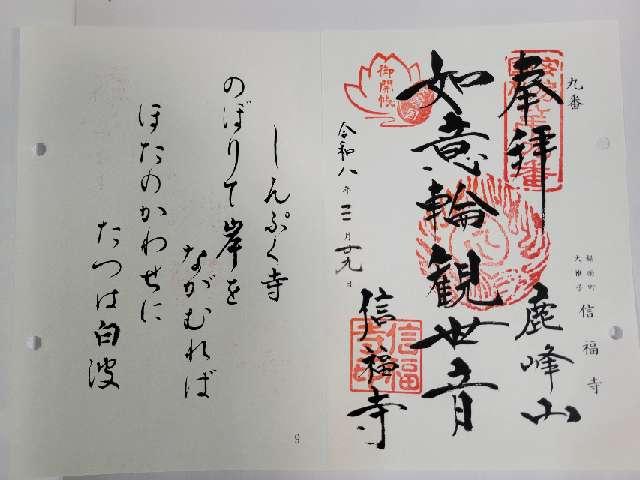 九番
奉拝
鹿峰山
信福寺
如意輪観世音
御開帳
令和八年三月廿九日
信福寺
信福
しんぷく寺
のぼりて岸を
ながむれば
ほたのかわせに
たつは白波
9